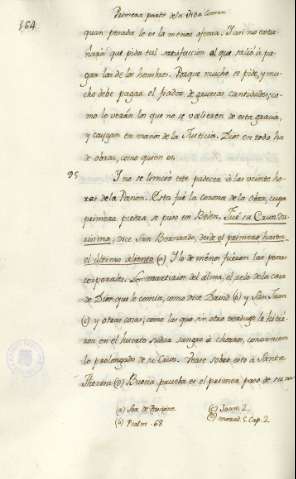 164
Primera parte de la Vida Comun
quan pesada le es la menor afrenta. Y asi no extra
ñarán que pida tal satisfaccion al que salió á pa
gar las de los hombres. Porque mucho se pide, y mu
cho debe pagar el fiador de gruesas cantidades, co
mo lo verán los que no se valieren de esta gracia,
y caygan en manos de la Justicia. Dios en todo ha
de obrar, como quien es.
95 Y no se limitó este padecer á las veinte ho
ras de la Pasion. Esta fué la corona de la obra, cuya
primera piedra se puso en Belén. Fué su Cruz Con
tinua, dice San Bernardo, desde el primero hasta
el último aliento (a) Y lo de menos fueron las penas
corporales. Los martirios del alma, el zelo de la casa
de Dios que le comia, como dice David (b) y San Juan
(c) y otras cosas, como las que sin otro verdugo le hicie
ron en el huerto sudar sangre á chorros, convencen
lo prolongado de su Cruz. Vease sobre esto á Santa
Theresa (D) Buena prueba es el primer paso de su
(a) Ser. de Passione
(b) Psalm. 68
(c) Joan. 2.
(D) Morad. 5. Cap. 2